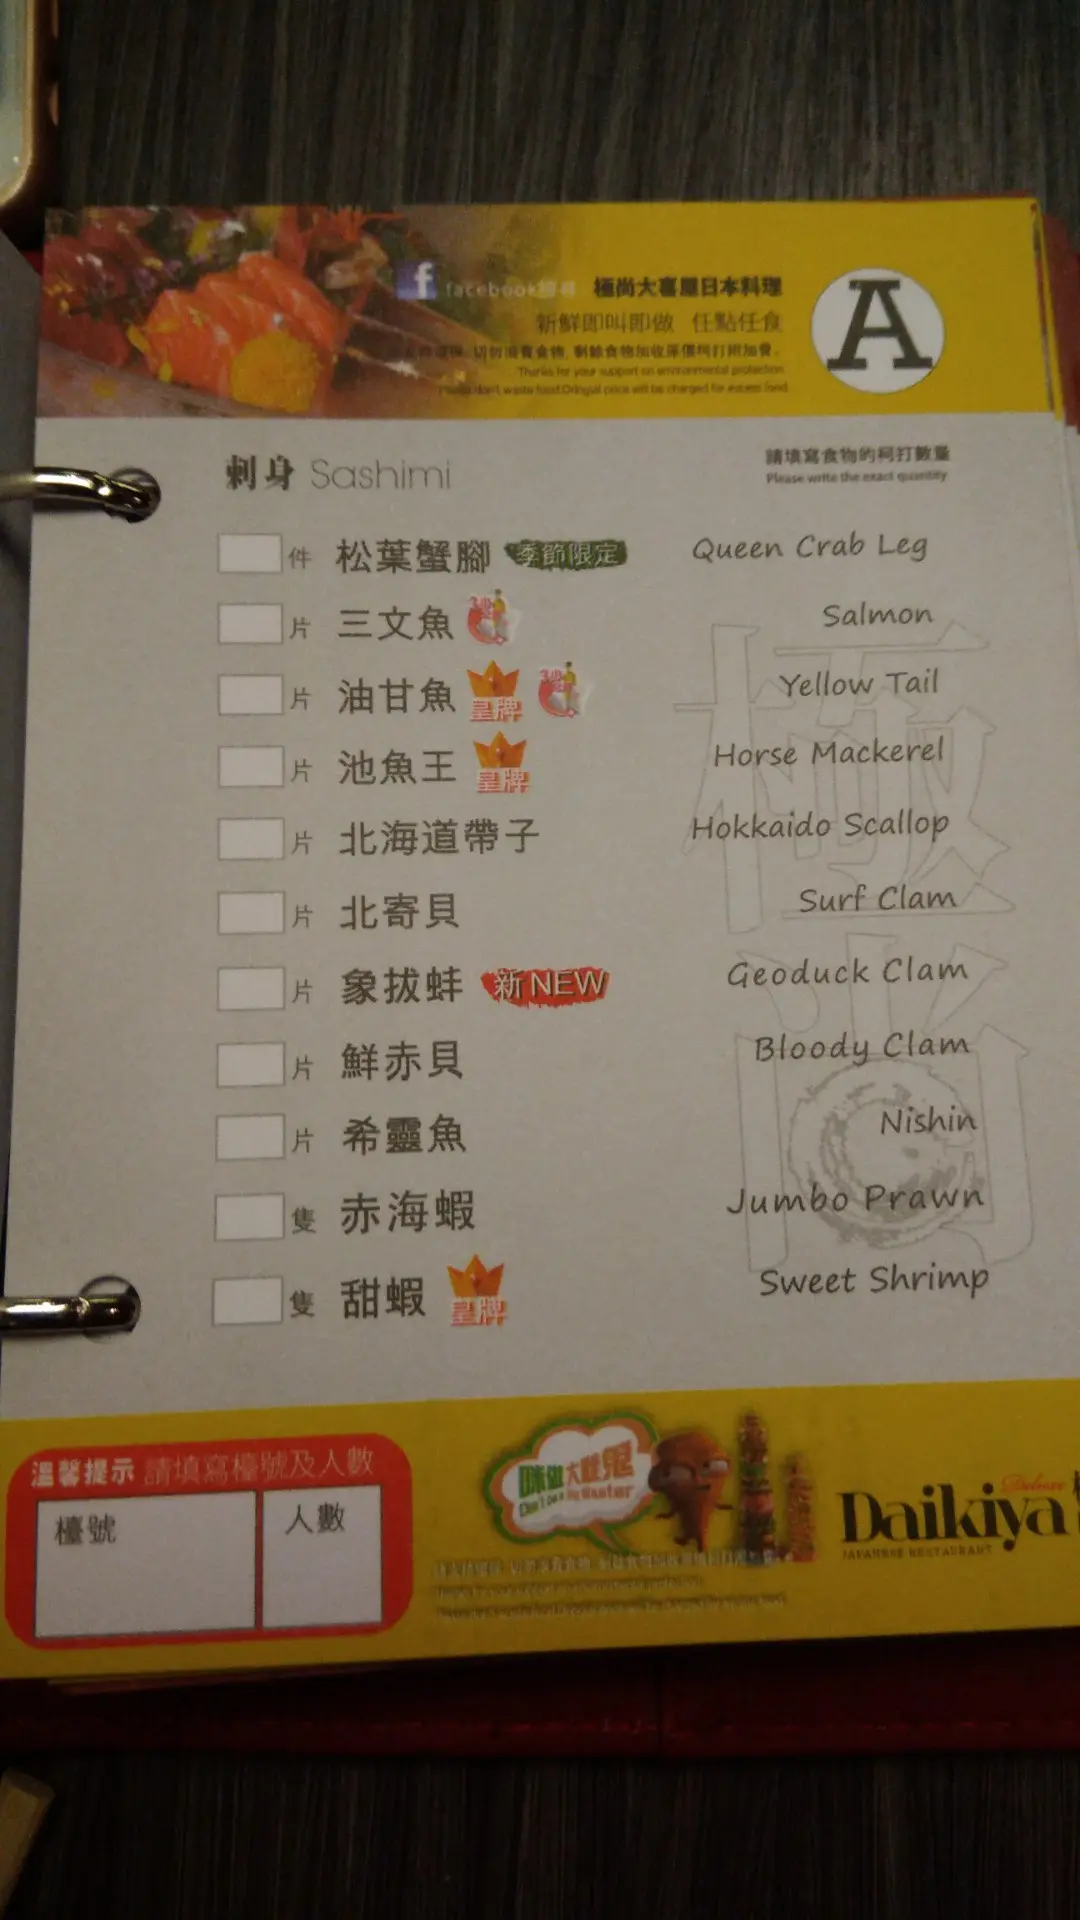 facebook搜尋 極尚大喜屋日本料理
新鮮即叫即做 任點任食
切勿浪費食物, 剩餘食物加收原價柯打附加費。
Thanks for your support on environmental protection.
Please don't waste food.Oringal price will be charged for excess food
A
刺身 Sashimi
請填寫食物的柯打數量
Please write the exact quantity
件 松葉蟹腳 季節限定 Queen Crab Leg
片 三文魚 Salmon
片 油甘魚 皇牌 Yellow Tail
片 池魚王 皇牌 Horse Mackerel
片 北海道帶子 Hokkaido Scallop
片 北寄貝 Surf Clam
片 象拔蚌 新 NEW Geoduck Clam
片 鮮赤貝 Bloody Clam
片 希靈魚 Nishin
隻 赤海蝦 Jumbo Prawn
隻 甜蝦 皇牌 Sweet Shrimp
極尚
溫馨提示 請填寫檯號及人數
檯號 人數
咪做大嘥鬼
Deluxe
Daikiya
JAPANESE RESTAURANT